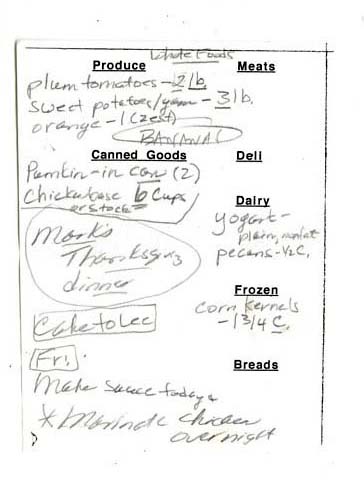 Whole Foods
Produce
plum tomatoes - 2 lb.
sweet potatoes/yam - 3 lb.
orange - 1 (zest)
BANANAS
Canned Goods
Pumkin - in can (2)
Chicken base 6 cups
or stock
Mark's
Thanksgiving
dinner
Cake to Lee
Fri.
Make sauce today
* Marinate chicken
overnight
Meats
Deli
Dairy
yogurt -
plain, nonfat
pecans - 1/2 C.
Frozen
corn kernels
- 1 3/4 C.
Breads